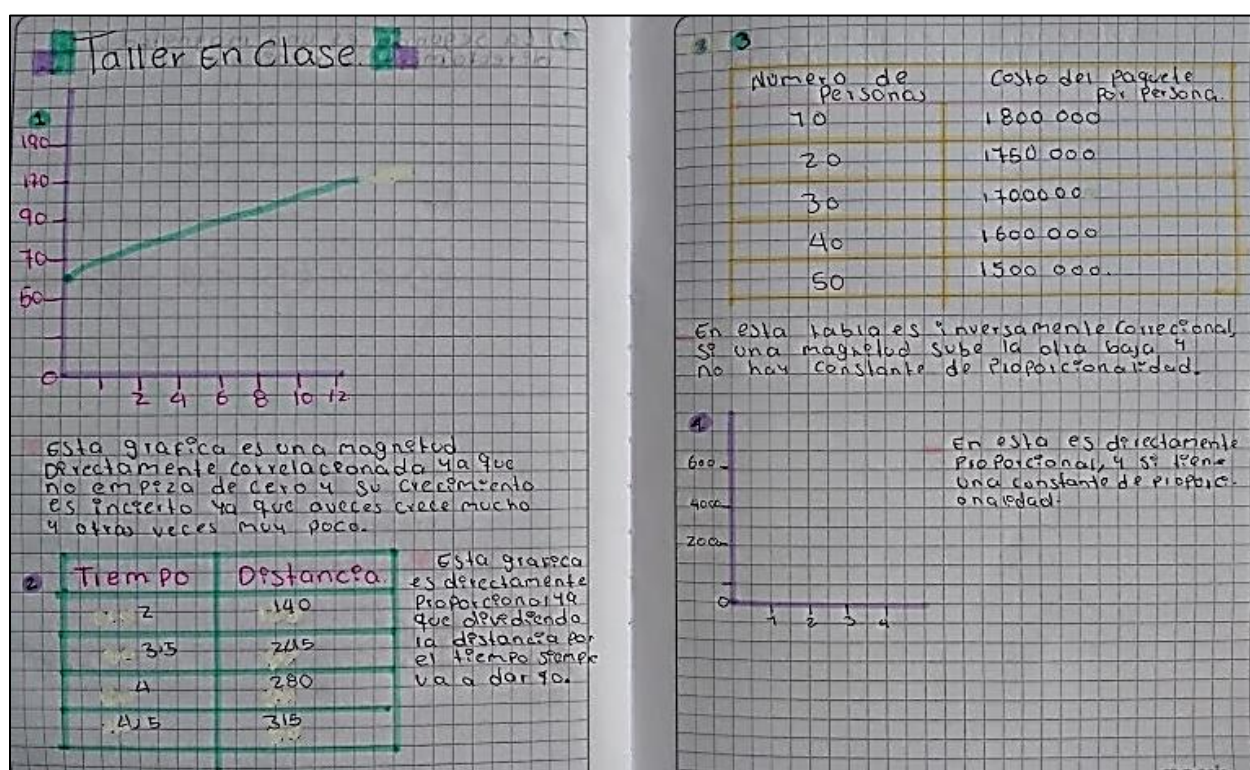 Taller En Clase.
1
190
170
90
70
50
0
2 4 6 8 10 12
Esta grafica es una magnetud
Directamente correlacionada ya que
no empieza de cero y su crecimiento
es incierto ya que aveces crece mucho
y otras veces muy poco.
2
Tiempo Distancia
2 140
3.5 245
4 280
4,5 315
Esta grafica
es directamente
Proporcional ya
que dividiendo
la distancia por
el tiempo siempre
va a dar 70.
3
Numero de Personas
Costo del paquete Por Persona.
10 1800 000
20 1750 000
30 1700000
40 1600 000
50 1500 000.
En esta tabla es inversamente correcional,
si una magnetud sube la otra baja y
no hay constante de Proporcionalidad.
4
600
4000
2000
0
1 2 3 4
En esta es directamente
Proporcional, y si tiene
una constante de proporc-
onalidad.